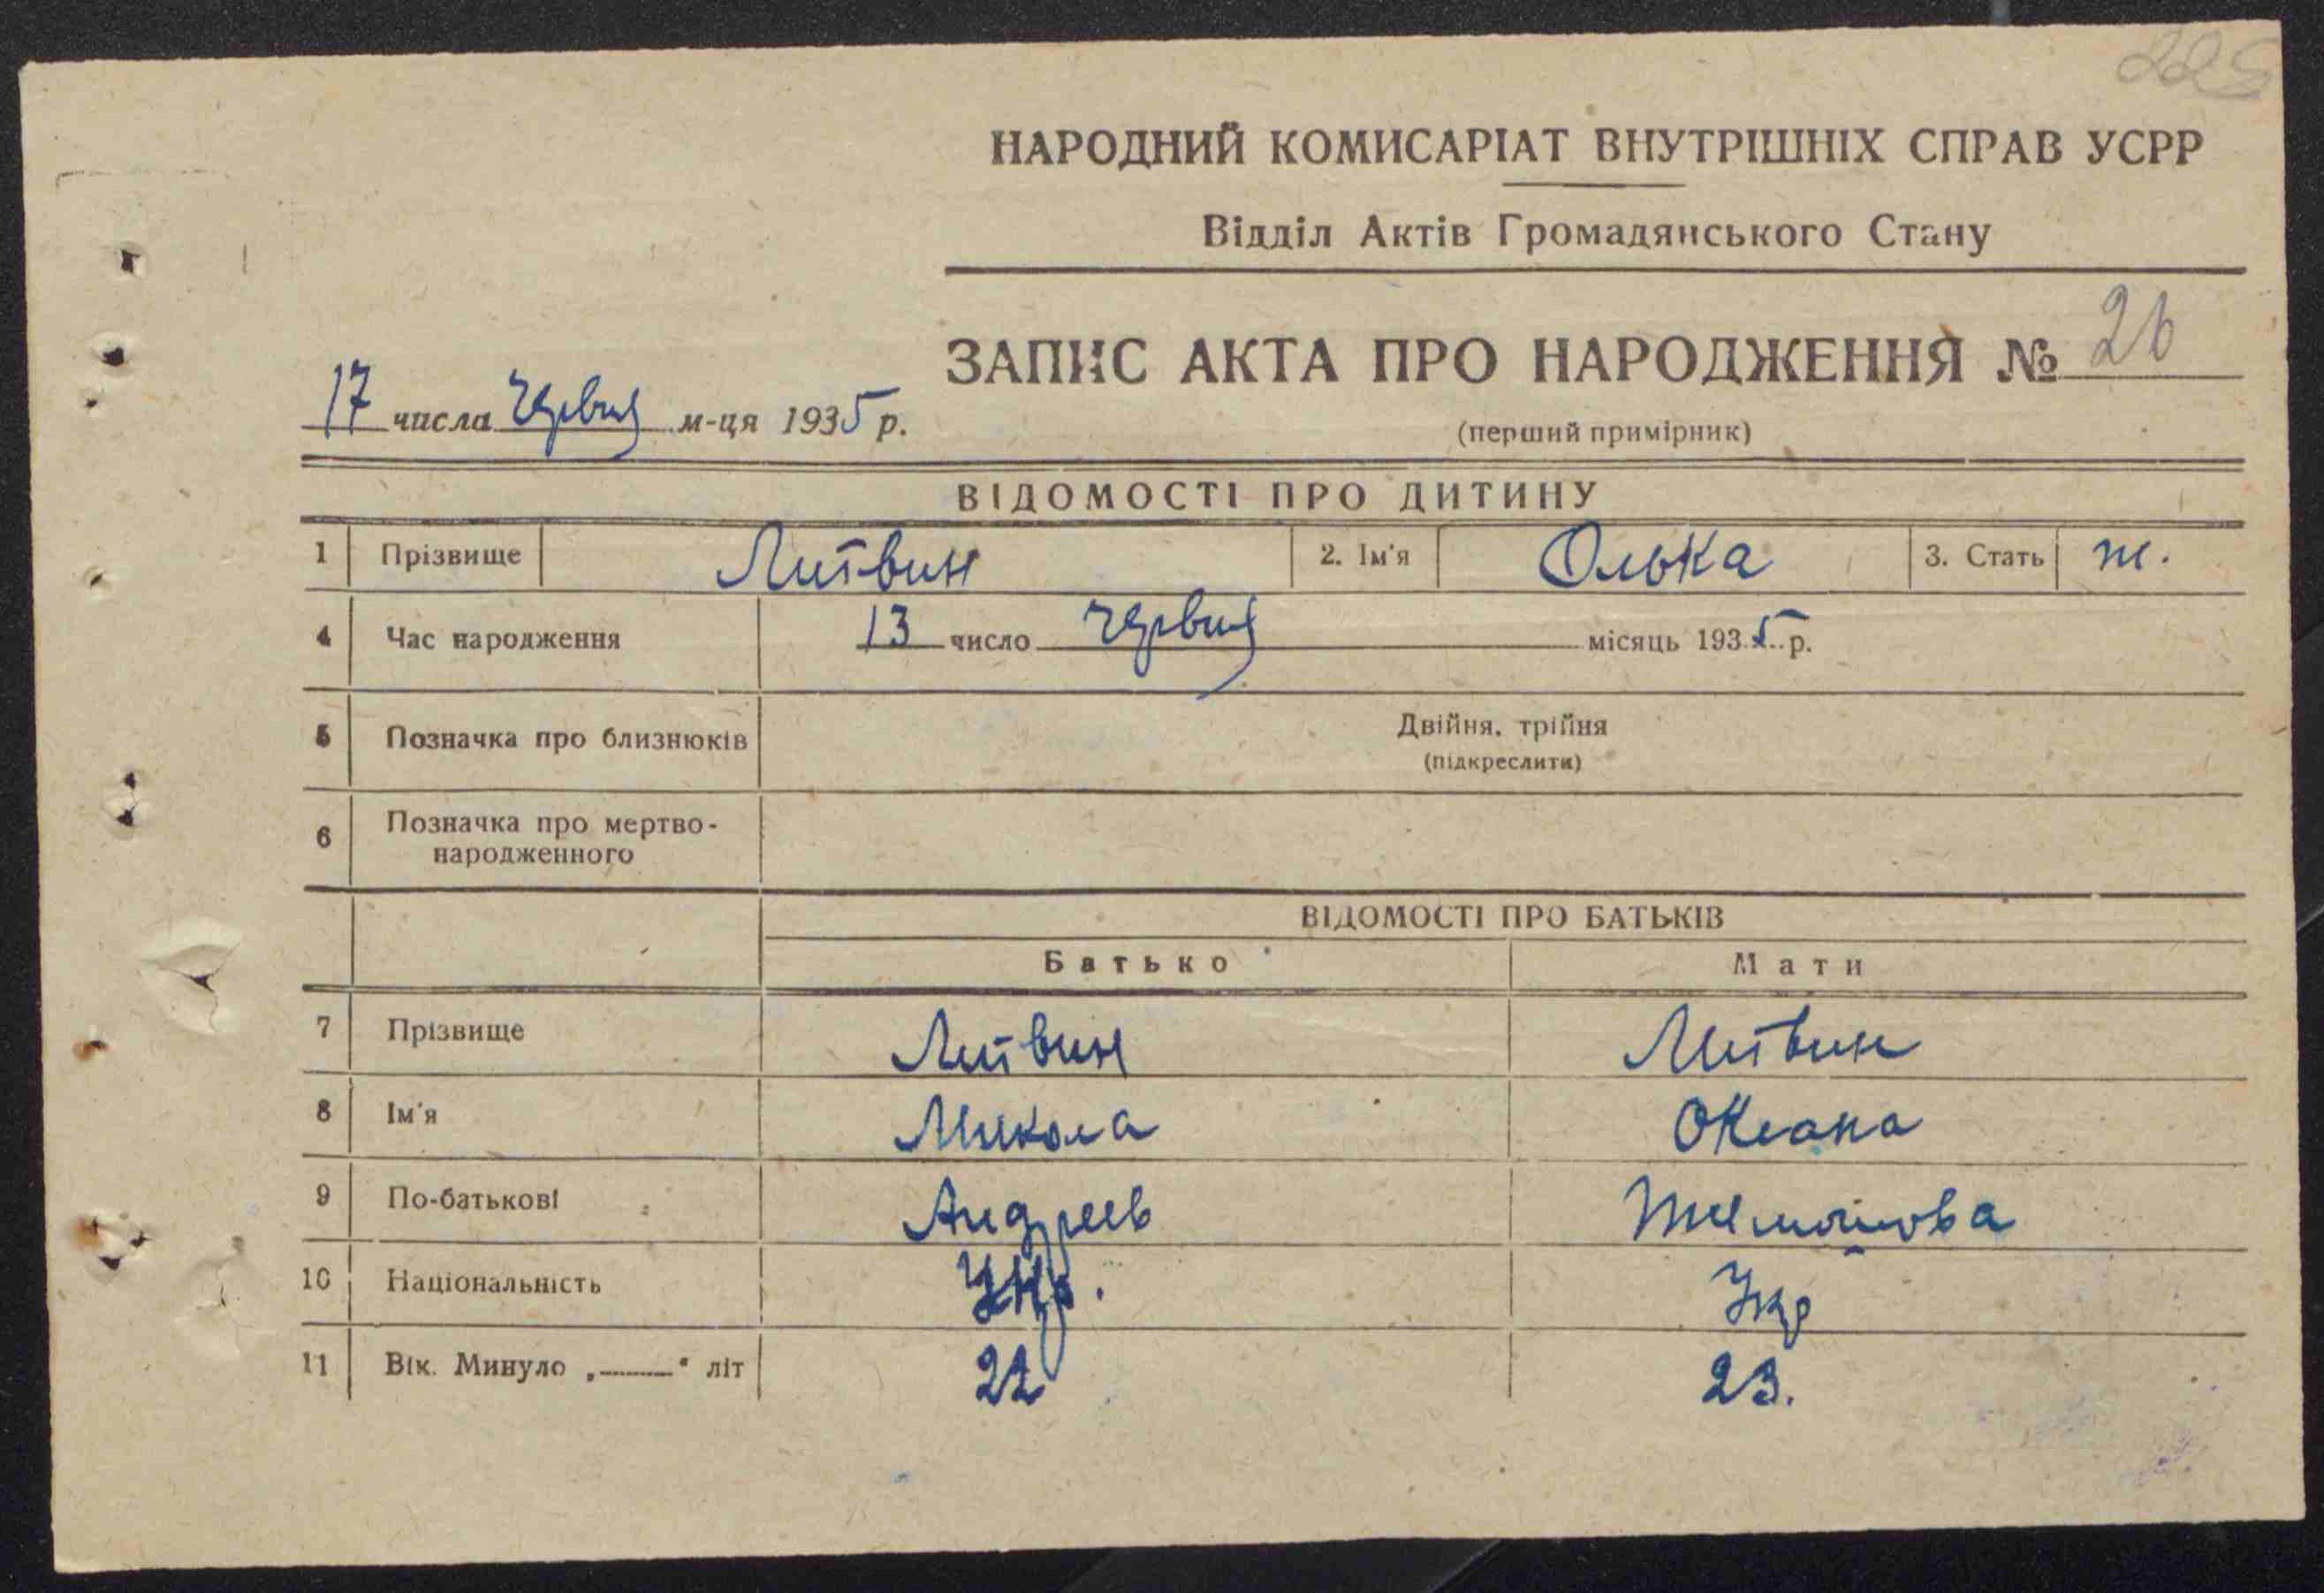 225
НАРОДНИЙ КОМИСАРІАТ ВНУТРІШНІХ СПРАВ УСРР
Відділ Актів Громадянського Стану
ЗАПИС АКТА ПРО НАРОДЖЕННЯ № 26
17 числа червня м-ця 1935 р.
(перший примірник)
ВІДОМОСТІ ПРО ДИТИНУ
1 Прізвище Литвин 2. Ім'я Олька 3. Стать ж.
4 Час народження 13 число червня місяць 1935 р.
5 Позначка про близнюків Двійня, трійня
(підкреслити)
6 Позначка про мертво-
народженного
ВІДОМОСТІ ПРО БАТЬКІВ
Батько Мати
7 Прізвище Литвин Литвин
8 Ім'я Микола
9 По-батькові Андреев
10 Національність Укр. Укр
11 Вік. Минуло „——“ літ 22 23.